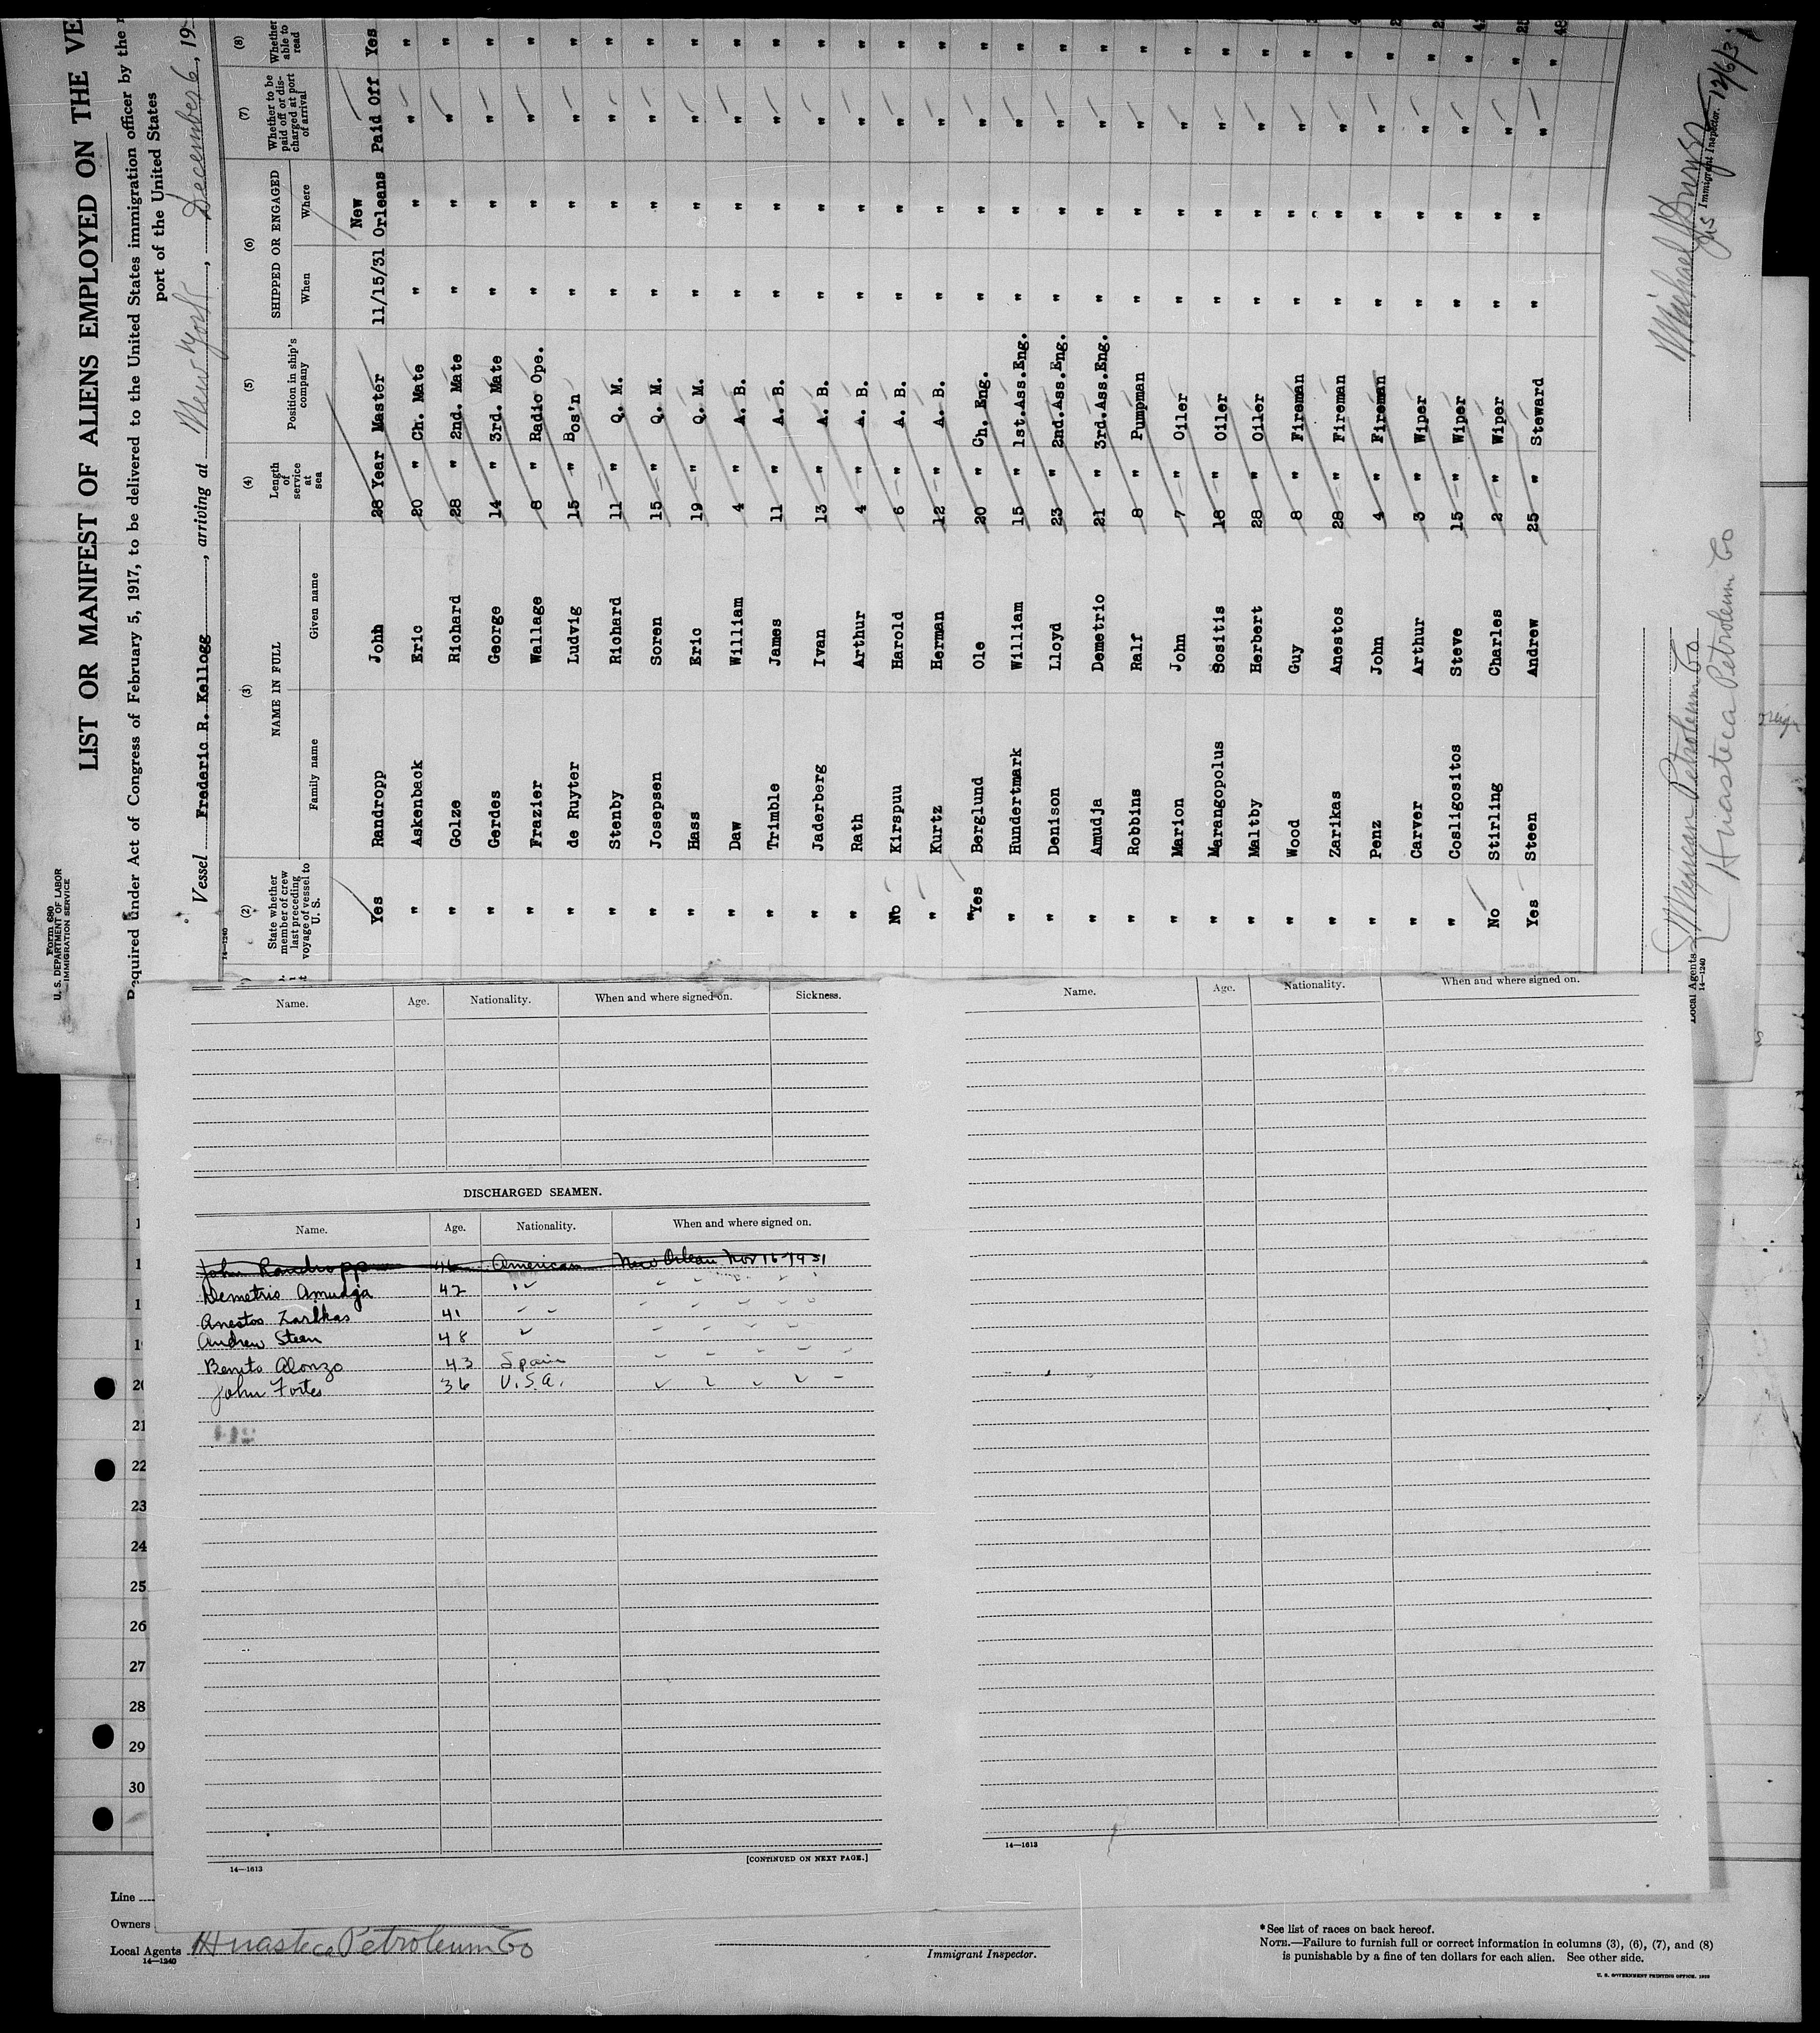 Form 680
U. S. DEPARTMENT OF LABOR
IMMIGRATION SERVICE
LIST OR MANIFEST OF ALIENS EMPLOYED ON THE VE
Required under Act of Congress of February 5, 1917, to be delivered to the United States immigration officer by the
port of the United States
Vessel Frederic R. Kellogg, arriving at New York, December 6, 19
14-1240
(2) (3) (4) (5) (6) (7) (8)
State whether member of crew last preceding voyage of vessel to U. S. NAME IN FULL Length of service at sea Position in ship's company SHIPPED OR ENGAGED Whether to be paid off or discharged at port of arrival Whether able to read
Family name Given name When Where
Yes Randropp John 28 Year Master 11/15/31 New Orleans Paid Off Yes
" Askenback Eric 20 " Ch. Mate " " " "
" Golze Richard 28 " 2nd. Mate " " " "
" Gerdes George 14 " 3rd. Mate " " " "
" Frazier Wallage 8 " Radio Ope. " " " "
" de Ruyter Ludvig 15 " Bos'n " " " "
" Stenby Richard 11 " Q. M. " " " "
" Josepsen Soren 15 " Q. M. " " " "
" Hass Eric 19 " Q. M. " " " "
" Daw William 4 " A. B. " " " "
" Trimble James 11 " A. B. " " " "
" Jaderberg Ivan 13 " A. B. " " " "
" Rath Arthur 4 " A. B. " " " "
No Kirspuu Harold 6 " A. B. " " " "
" Kurtz Herman 12 " A. B. " " " "
"Yes Berglund Ole 20 " Ch. Eng. " " " "
" Hundertmark William 15 " 1st.Ass.Eng. " " " "
" Denison Lloyd 23 " 2nd.Ass.Eng. " " " "
" Amudja Demetrio 21 " 3rd.Ass.Eng. " " " "
" Robbins Ralf 8 " Pumpman " " " "
" Marion John 7 " Oiler " " " "
" Marangopolus Sositis 18 " Oiler " " " "
" Maltby Herbert 28 " Oiler " " " "
" Wood Guy 8 " Fireman " " " "
" Zarikas Anestos 28 " Fireman " " " "
" Penz John 4 " Fireman " " " "
" Carver Arthur 3 " Wiper " " " "
" Cosligositos Steve 15 " Wiper " " " "
No Stirling Charles 2 " Wiper " " " "
Yes Steen Andrew 25 " Steward " " " "
Mexican Petroleum Co
Local Agents Huasteca Petroleum Co
14-1240
Michael
Immigrant Inspector.
Name. Age. Nationality. When and where signed on. Sickness.
DISCHARGED SEAMEN.
Name. Age. Nationality. When and where signed on.
John Randropp 46 American New Orlean Nov 16-1931
Demetrio Amudja 42 "
Anestos Zarikas 41 "
Andrew Steen 48 "
Benito Alonzo 43 Spain
John Fortes 36 U.S.A.
14—1613
[CONTINUED ON NEXT PAGE.]
Name. Age. Nationality. When and where signed on.
14—1613
20
21
22
23
24
25
26
27
28
29
30
Line
Owners
Local Agents Huasteca Petroleum Co
14—1240
Immigrant Inspector.
*See list of races on back hereof.
NOTE.—Failure to furnish full or correct information in columns (3), (6), (7), and (8)
is punishable by a fine of ten dollars for each alien. See other side.
U. S. GOVERNMENT PRINTING OFFICE